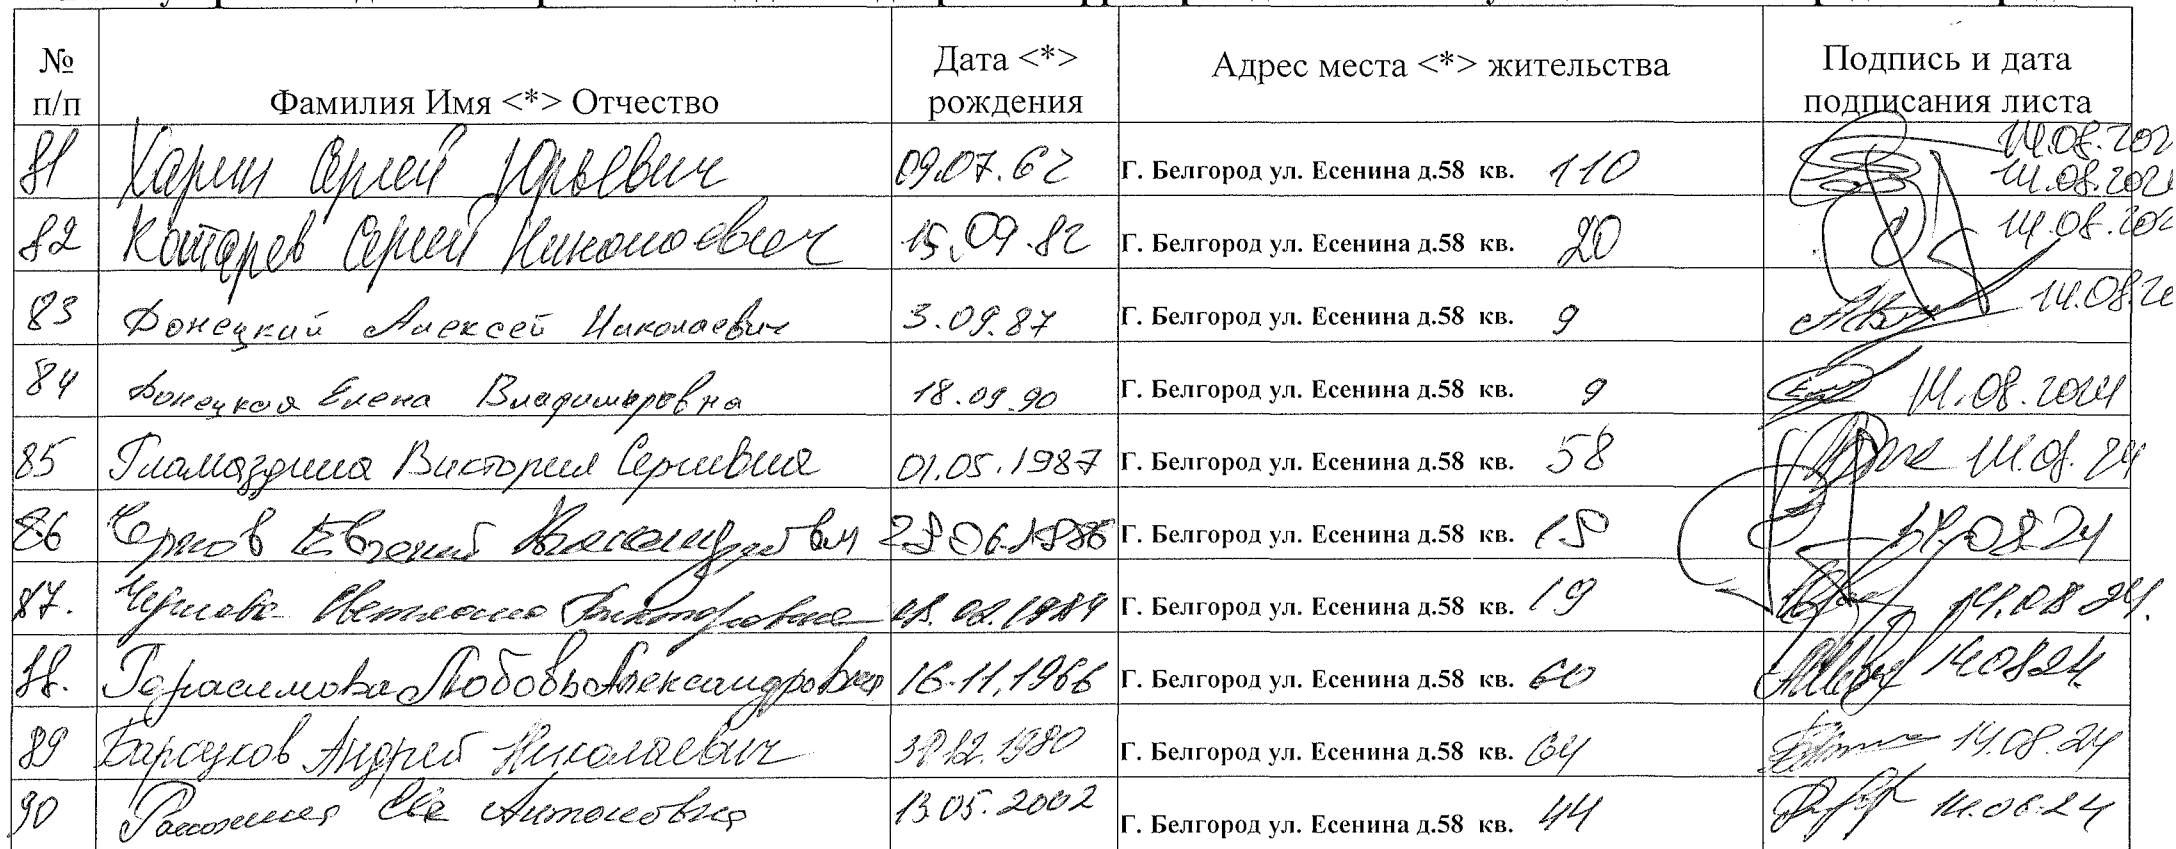 № п/п Фамилия Имя <*> Отчество Дата <*> рождения Адрес места <*> жительства Подпись и дата подписания листа
81 Харин Сергей Юрьевич 09.07.62 Г. Белгород ул. Есенина д.58 кв. 110 14.08.202 14.08.2024
82 Котарев Сергей Николаевич 15.09.82 Г. Белгород ул. Есенина д.58 кв. 20 14.08.202
83 Донецкий Алексей Николаевич 3.09.87 Г. Белгород ул. Есенина д.58 кв. 9 14.08.20
84 Донецкая Елена Владимировна 18.09.90 Г. Белгород ул. Есенина д.58 кв. 9 14.08.2024
85 Гламаздина Виктория Сергеевна 01.05.1987 Г. Белгород ул. Есенина д.58 кв. 58 14.08.24
86 Чернов Евгений Г. Белгород ул. Есенина д.58 кв. 14.08.24
87. Чернова Светлана Викторовна Г. Белгород ул. Есенина д.58 кв. 19 14.08.24.
88. Герасимова Любовь Александровна 16.11.1966 Г. Белгород ул. Есенина д.58 кв. 60 14.08.24.
89 Барсуков Андрей Николаевич Г. Белгород ул. Есенина д.58 кв. 64 14.08.24
90 Ева Антоновна 13.05.2002 Г. Белгород ул. Есенина д.58 кв. 44 14.08.24